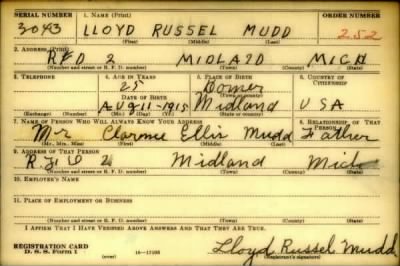 SERIAL NUMBER 1. NAME (Print) ORDER NUMBER
3043 LLOYD RUSSEL MUDD 252
(First) (Middle) (Last)
2. ADDRESS (Print)
RFD 2 MIDLAND MICH
(Number and street or R. F. D. number) (Town) (County) (State)
3. TELEPHONE 4. AGE IN YEARS 5. PLACE OF BIRTH 6. COUNTRY OF CITIZENSHIP
25 Homer
DATE OF BIRTH Midland USA
AUG-11-1915
(Exchange) (Number) (Mo.) (Day) (Yr.) (State or country)
7. NAME OF PERSON WHO WILL ALWAYS KNOW YOUR ADDRESS 8. RELATIONSHIP OF THAT PERSON
Mr Clarence Ellis Mudd Father
(Mr., Mrs., Miss) (First) (Middle) (Last)
9. ADDRESS OF THAT PERSON
R.F.D 2 Midland Mich
(Number and street or R. F. D. number) (Town) (County) (State)
10. EMPLOYER'S NAME
11. PLACE OF EMPLOYMENT OR BUSINESS
(Number and street or R. F. D. number) (Town) (County) (State)
I AFFIRM THAT I HAVE VERIFIED ABOVE ANSWERS AND THAT THEY ARE TRUE.
REGISTRATION CARD
D. S. S. Form 1 Lloyd Russel Mudd
(Registrant's signature)